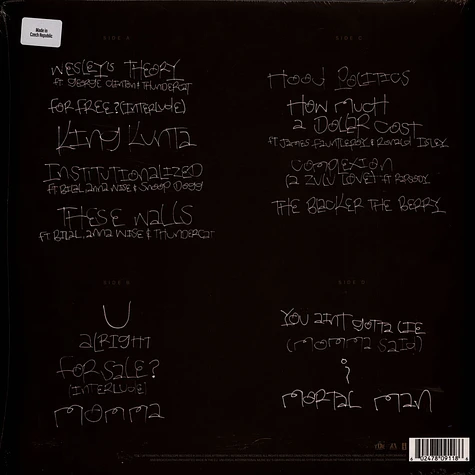 Made in
Czech Republic
SIDE A
WESLEY'S THEORY
ft GEORGE CLINTON & THUNDERCAT
FOR FREE? (INTERLUDE)
KING KUNTA
INSTITUTIONALIZED
ft BILAL, ANNA WISE & SNOOP DOGG
THESE WALLS
ft BILAL, ANNA WISE & THUNDERCAT
SIDE B
U
ALRIGHT
FOR SALE?
(INTERLUDE)
MOMMA
SIDE C
HOOD POLITICS
HOW MUCH
A DOLLAR COST
ft JAMES FAUNTLEROY & RONALD ISLEY
COMPLEXION
(A ZULU LOVE) ft RAPSODY
THE BLACKER THE BERRY
SIDE D
YOU AINT GOTTA LIE
(MOMMA SAID)
i
MORTAL MAN